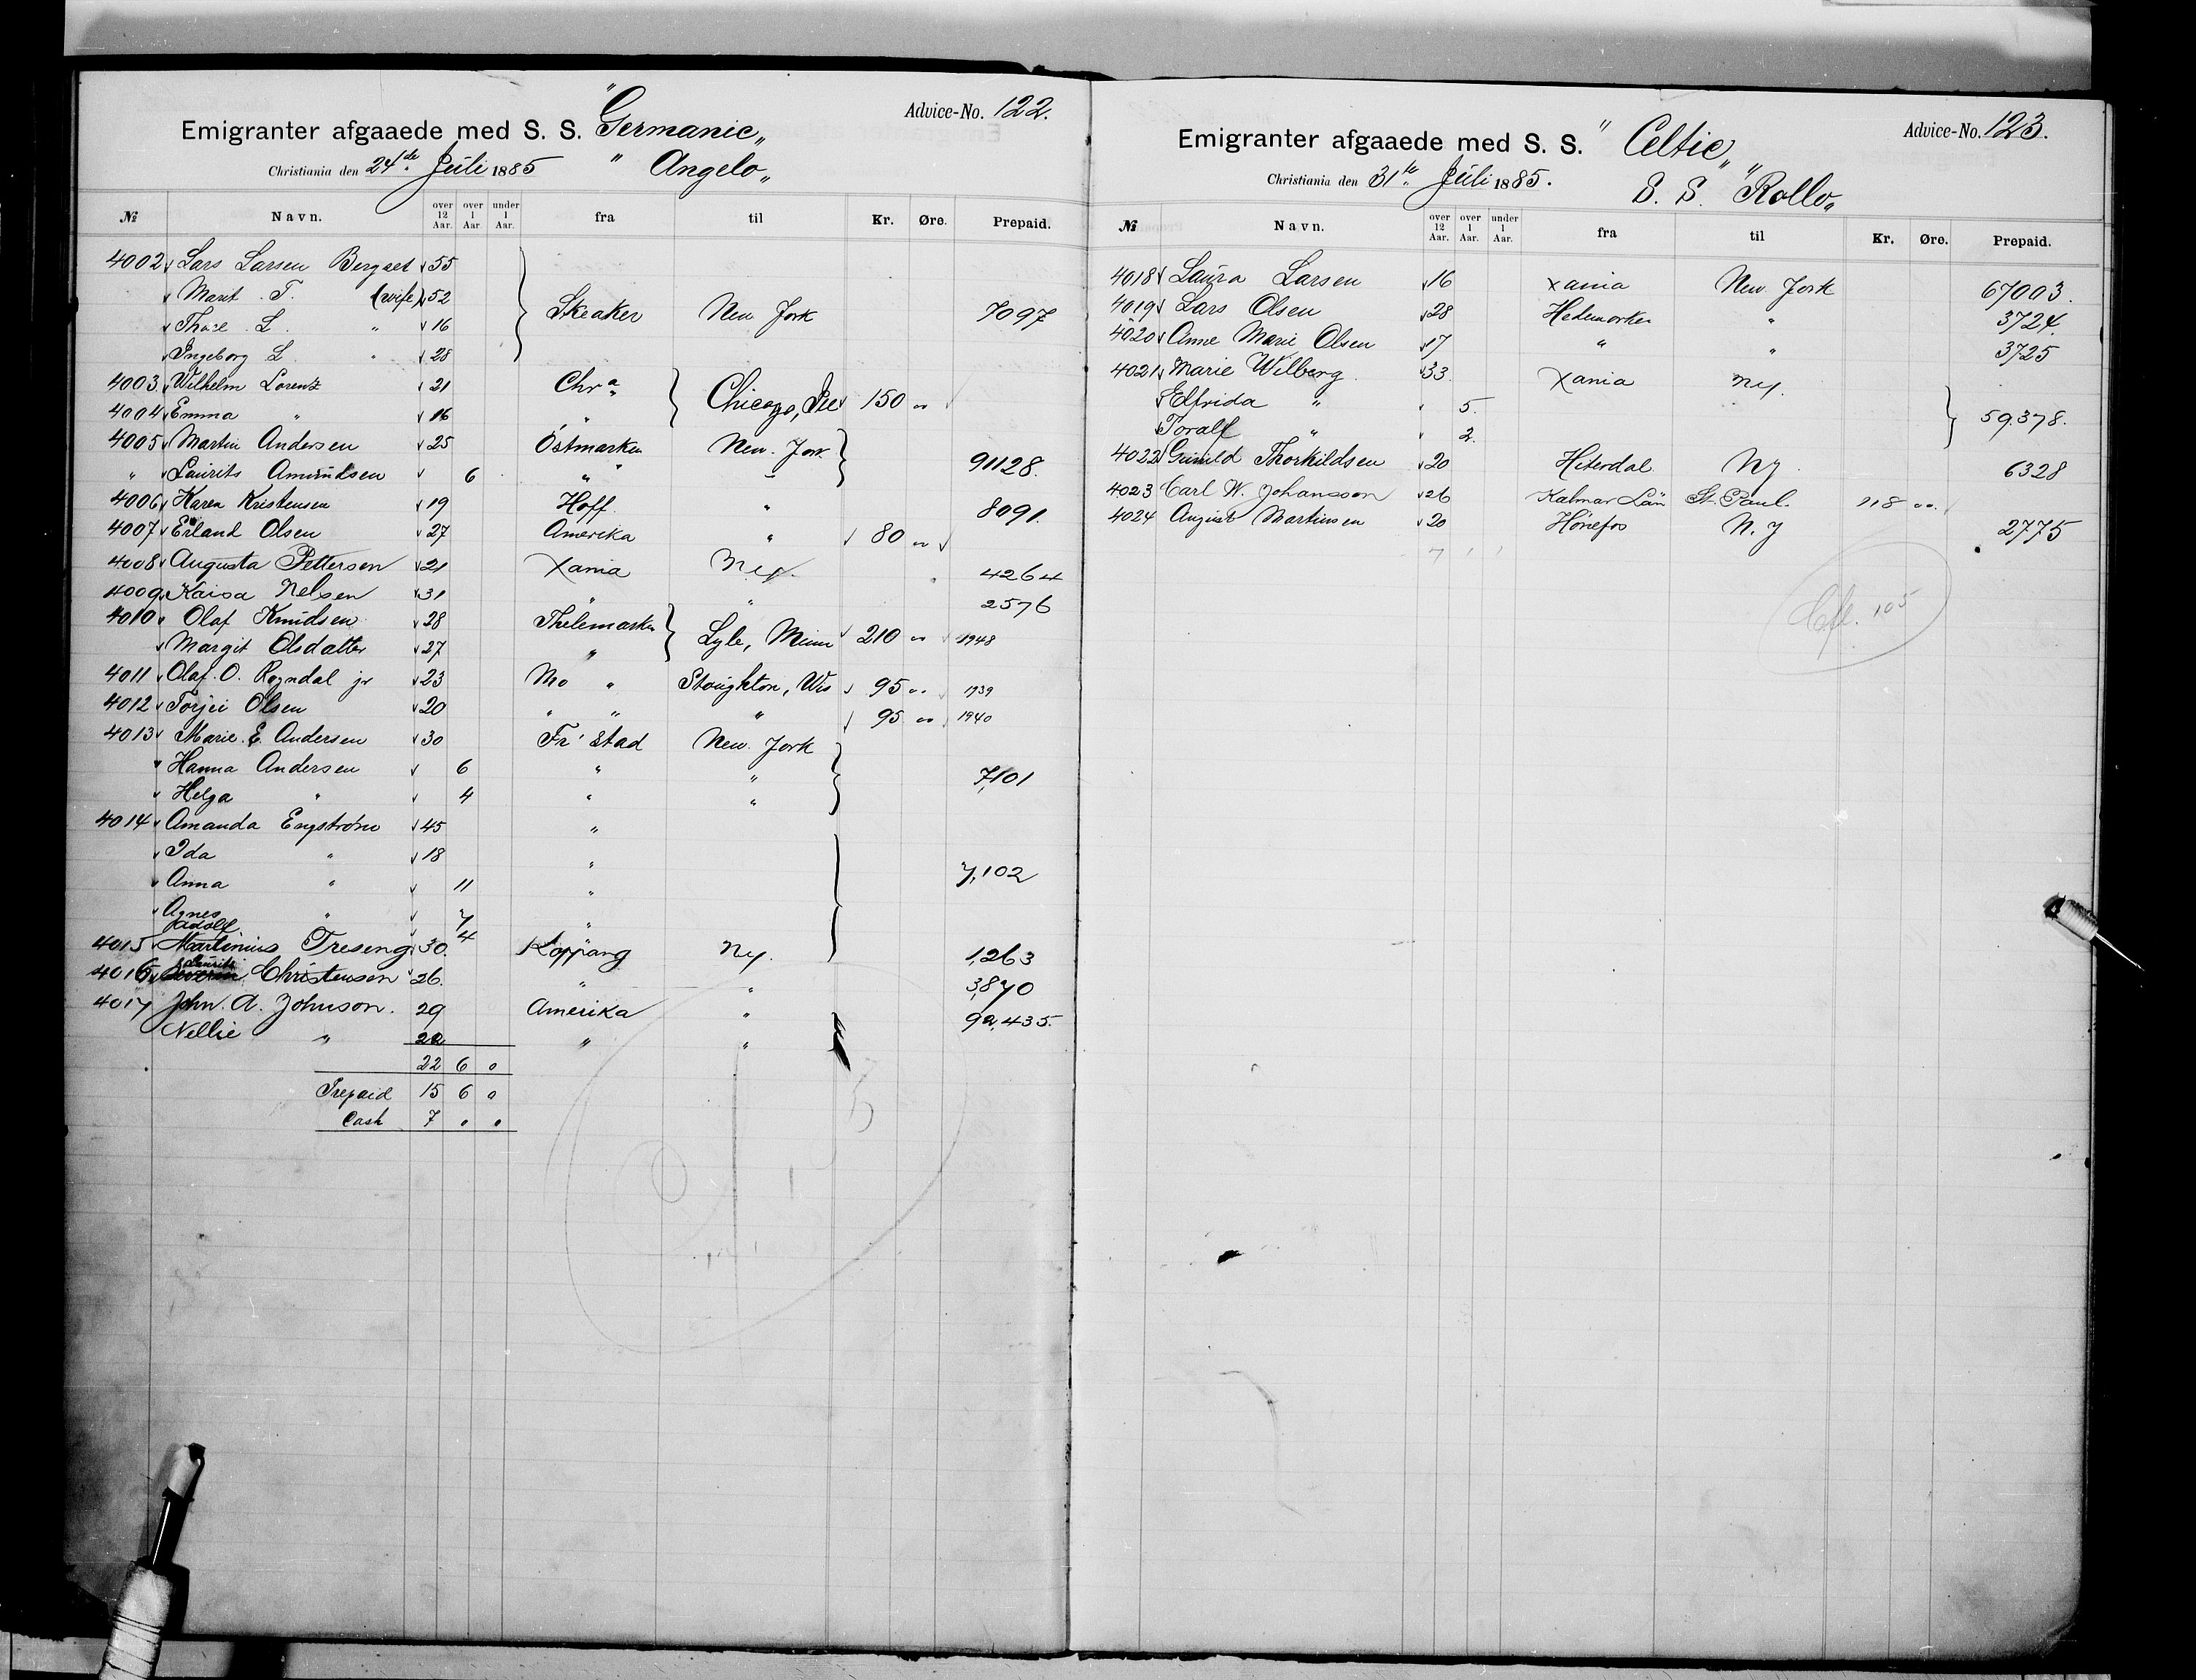 Advice-No. 122.
Emigranter afgaaede med S. S. "Germanic„
Christiania den 24de Juli 1885 " Angelo„
№ Navn. over 12 Aar. over 1 Aar. under 1 Aar. fra til Kr. Øre. Prepaid.
4002 Lars Larsen 55
Marit T. (wife) 52 Skeaker New York 7097
L. " 16
Ingeborg L " 28
4003 Wilhelm Lorenz 21 Chra Chicago, 150 "
4004 Emma " 16 "
4005 Martin Andersen 25 Östmarken New York 91128.
" Laurits Amundsen 6 "
4006 Karen Kristensen 19 Hoff " 8091.
4007 Erland Olsen 27 Amerika " 80 "
4008 Augusta Pettersen 21 Xania N.Y. 4264
4009 Kaisa Nelsen 31 " " 2576
4010 Olaf Knudsen 28 Thelemarken Lyle, Minn 210 " 1948
Margit Olsdatter 27 "
4011 Olaf O. Rogndal jr 23 Mo " Stoughton, Wis 95 " 1939
4012 Torjei Olsen 20 " " " 95 " 1940
4013 Marie E. Andersen 30 Fr'stad New York
Hanna Andersen 6 " " 7,101
Helga " 4 " "
4014 Amanda Engstrøm 45 "
Ida " 18 " 7,102
Anna " 11 "
Agnes " 7 "
Adolf 4 "
4015 Martinius Treseng 30. Koppang NY. 1,263
4016 Laurits Christensen 26. " " 3,870
4017 John. A. Johnson. 29 Amerika " 92,435.
Nellie " 22 " "
22 6 0
Prepaid 15 6 0
Cash 7 " "
Advice-No. 123.
Emigranter afgaaede med S. S. "Celtic„
Christiania den 31te Juli 1885. S. S. "Rollo„
№ Navn. over 12 Aar. over 1 Aar. under 1 Aar. fra til Kr. Øre. Prepaid.
4018 Laura Larsen 16 Xania New York 67003.
4019 Lars Olsen 28 Hedemarken " 3724.
4020 Anne Marie Olsen 17 " " 3725
4021 Marie Wilberg 33 Xania NY.
Elfrida " " 5. 59,378.
Toralf " " 2.
4022 Gunild Thorkildsen 20 Hiterdal NY 6328
4023 Carl W. Johansson 26 Kalmar Län St. Paul. 118 "
4024 August Martinsen 20 Hönefos N.Y 2775
105